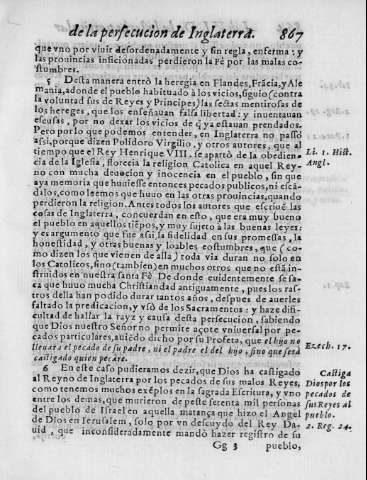 de la persecucion de Inglaterra. 867
que vno por viuir desordenadamente y sin regla, enferma: y
las prouincias inficionadas perdieron la Fé por las malas co-
stumbres.
5 Desta manera entró la heregia en Flandes, Frãcia, y Ale
mania, adonde el pueblo habituado à los vicios, siguio (contra
la voluntad sus de Reyes y Principes) las sectas mentirosas de
los hereges, que los enseñauan falsa libertad: y inuentauan
escusas, por no dexar los vicios de q̃ ya estauan prendados.
Pero por lo que podemos entender, en Inglaterra no passó
assi, porque dizen Polidoro Virgilio, y otros autores, que al
tiempo que el Rey Henrique VIII. se apartó de la obedien-
cia de la Iglesia, florecia la religion Catolica en aquel Rey-
no con mucha deuocion y inocencia en el pueblo, sin que
aya memoria que huuiesse entonces pecados publicos, ni escã-
dalos, como leemos que huuo en las otras prouincias, quando
perdieron la religion. Antes todos los autores que escriuẽ las
cosas de Inglaterra, concuerdan en esto, que era muy bueno
el pueblo en aquellos tiẽpos, y muy sujeto à las buenas leyes:
y es argumento que fue assi, la fidelidad en sus promessas, la
honestidad, y otras buenas y loables costumbres, que (co-
mo dizen los que vienen de allà) toda via duran no solo en
los Catolicos, sino (tambien) en muchos otros que no está in-
struidos en nuestra santa Fé. De donde euidentemente se sa-
ca que huuo mucha Christiandad antiguamente, pues los ras-
tros della han podido durar tantos años, despues de auerles
faltado la predicacion, y vsó de los Sacramentos: y haze dif-
ficultad de hallar la rayz y causa desta persecucion, sabiendo
que Dios nuestro Señor no permite açote vniuersal por pe-
cados particulares, auiẽdo dicho por su Profeto, que el hijo no
lleuará el pecado de su padre, ni el padre el del hijo, sino que será
castigado quien pecare.
6 En este caso pudieramos dezir, que Dios ha castigado
al Reyno de Inglaterra por los pecados de sus malos Reyes,
como tenemos muchos exẽplos en la sagrada Escritura, y vno
entre los demas, que murieron de peste setenta mil personas
del pueblo de Israel en aquella matança que hizo el Angel
de Dios en Ierusalem, solo por vn descuydo del Rey Da-
uid, que inconsideradamente mandó hazer registro de su
Gg 3 pueblo,
Li. 1. Hist.
Angl.
Ezech. 17.
Castiga
Dios por los
pecados de
sus Reyes al
pueblo.
2. Reg. 24.